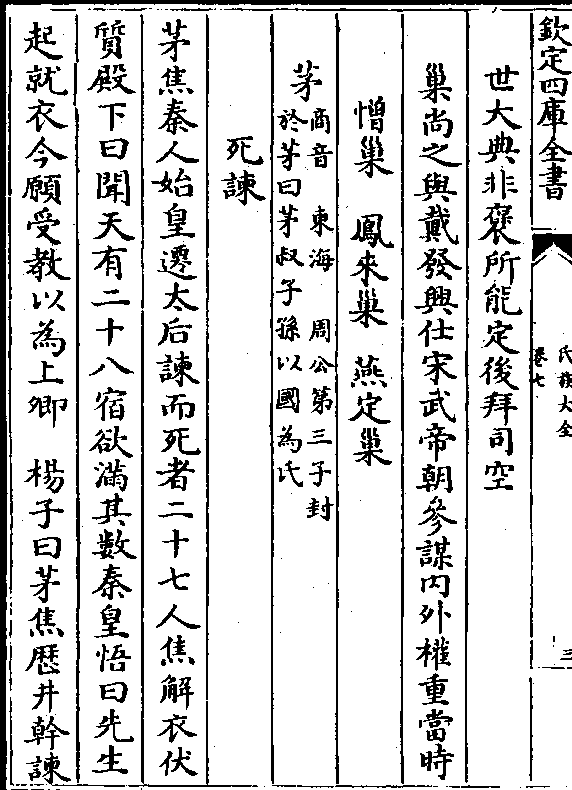 欽定四庫全書
氏族大全
卷七
三
世大典非褒所能定後拜司空
巢尚之與戴發興仕宋武帝朝參謀内外權重當時
憎巢　鳳来巢　燕定巢
茅
商音　東海　周公第三子封
於茅曰茅叔子孫以國為氏
死諫
茅焦秦人始皇遷太后諫而死者二十七人焦解衣伏
質殿下曰聞天有二十八宿欲滿其數秦皇悟曰先生
起就衣今願受教以為上卿　楊子曰茅焦歷井幹諫